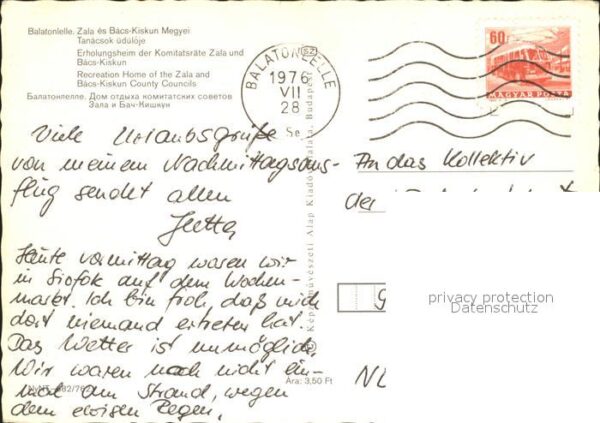 Balatonlelle. Zala és Bács-Kiskun Megyei
Tanácsok üdülője
Erholungsheim der Komitatsräte Zala und
Bács-Kiskun
Recreation Home of the Zala and
Bács-Kiskun County Councils
Балатонлелле. Дом отдыха комитатских советов
Зала и Бач-Кишкун
BALATONLELLE
1976
VII
28
60f
MAGYAR POSTA
Viele Urlaubsgrüße
von meinem Nachmittagsaus-
flug sendet allen
Jutta
Heute vormittag waren wir
in Siofok auf dem Wochen-
markt. Ich bin froh, daß mich
dort niemand ertreten hat.
Das Wetter ist unmöglich,
Wir waren noch nicht ein-
mal am Strand, wegen
dem ewigen Regen.
Képzőművészeti Alap Kiadóvállalata, Budapest
Ára: 3,50 Ft
An das Kollektiv
der
privacy protection
Datenschutz